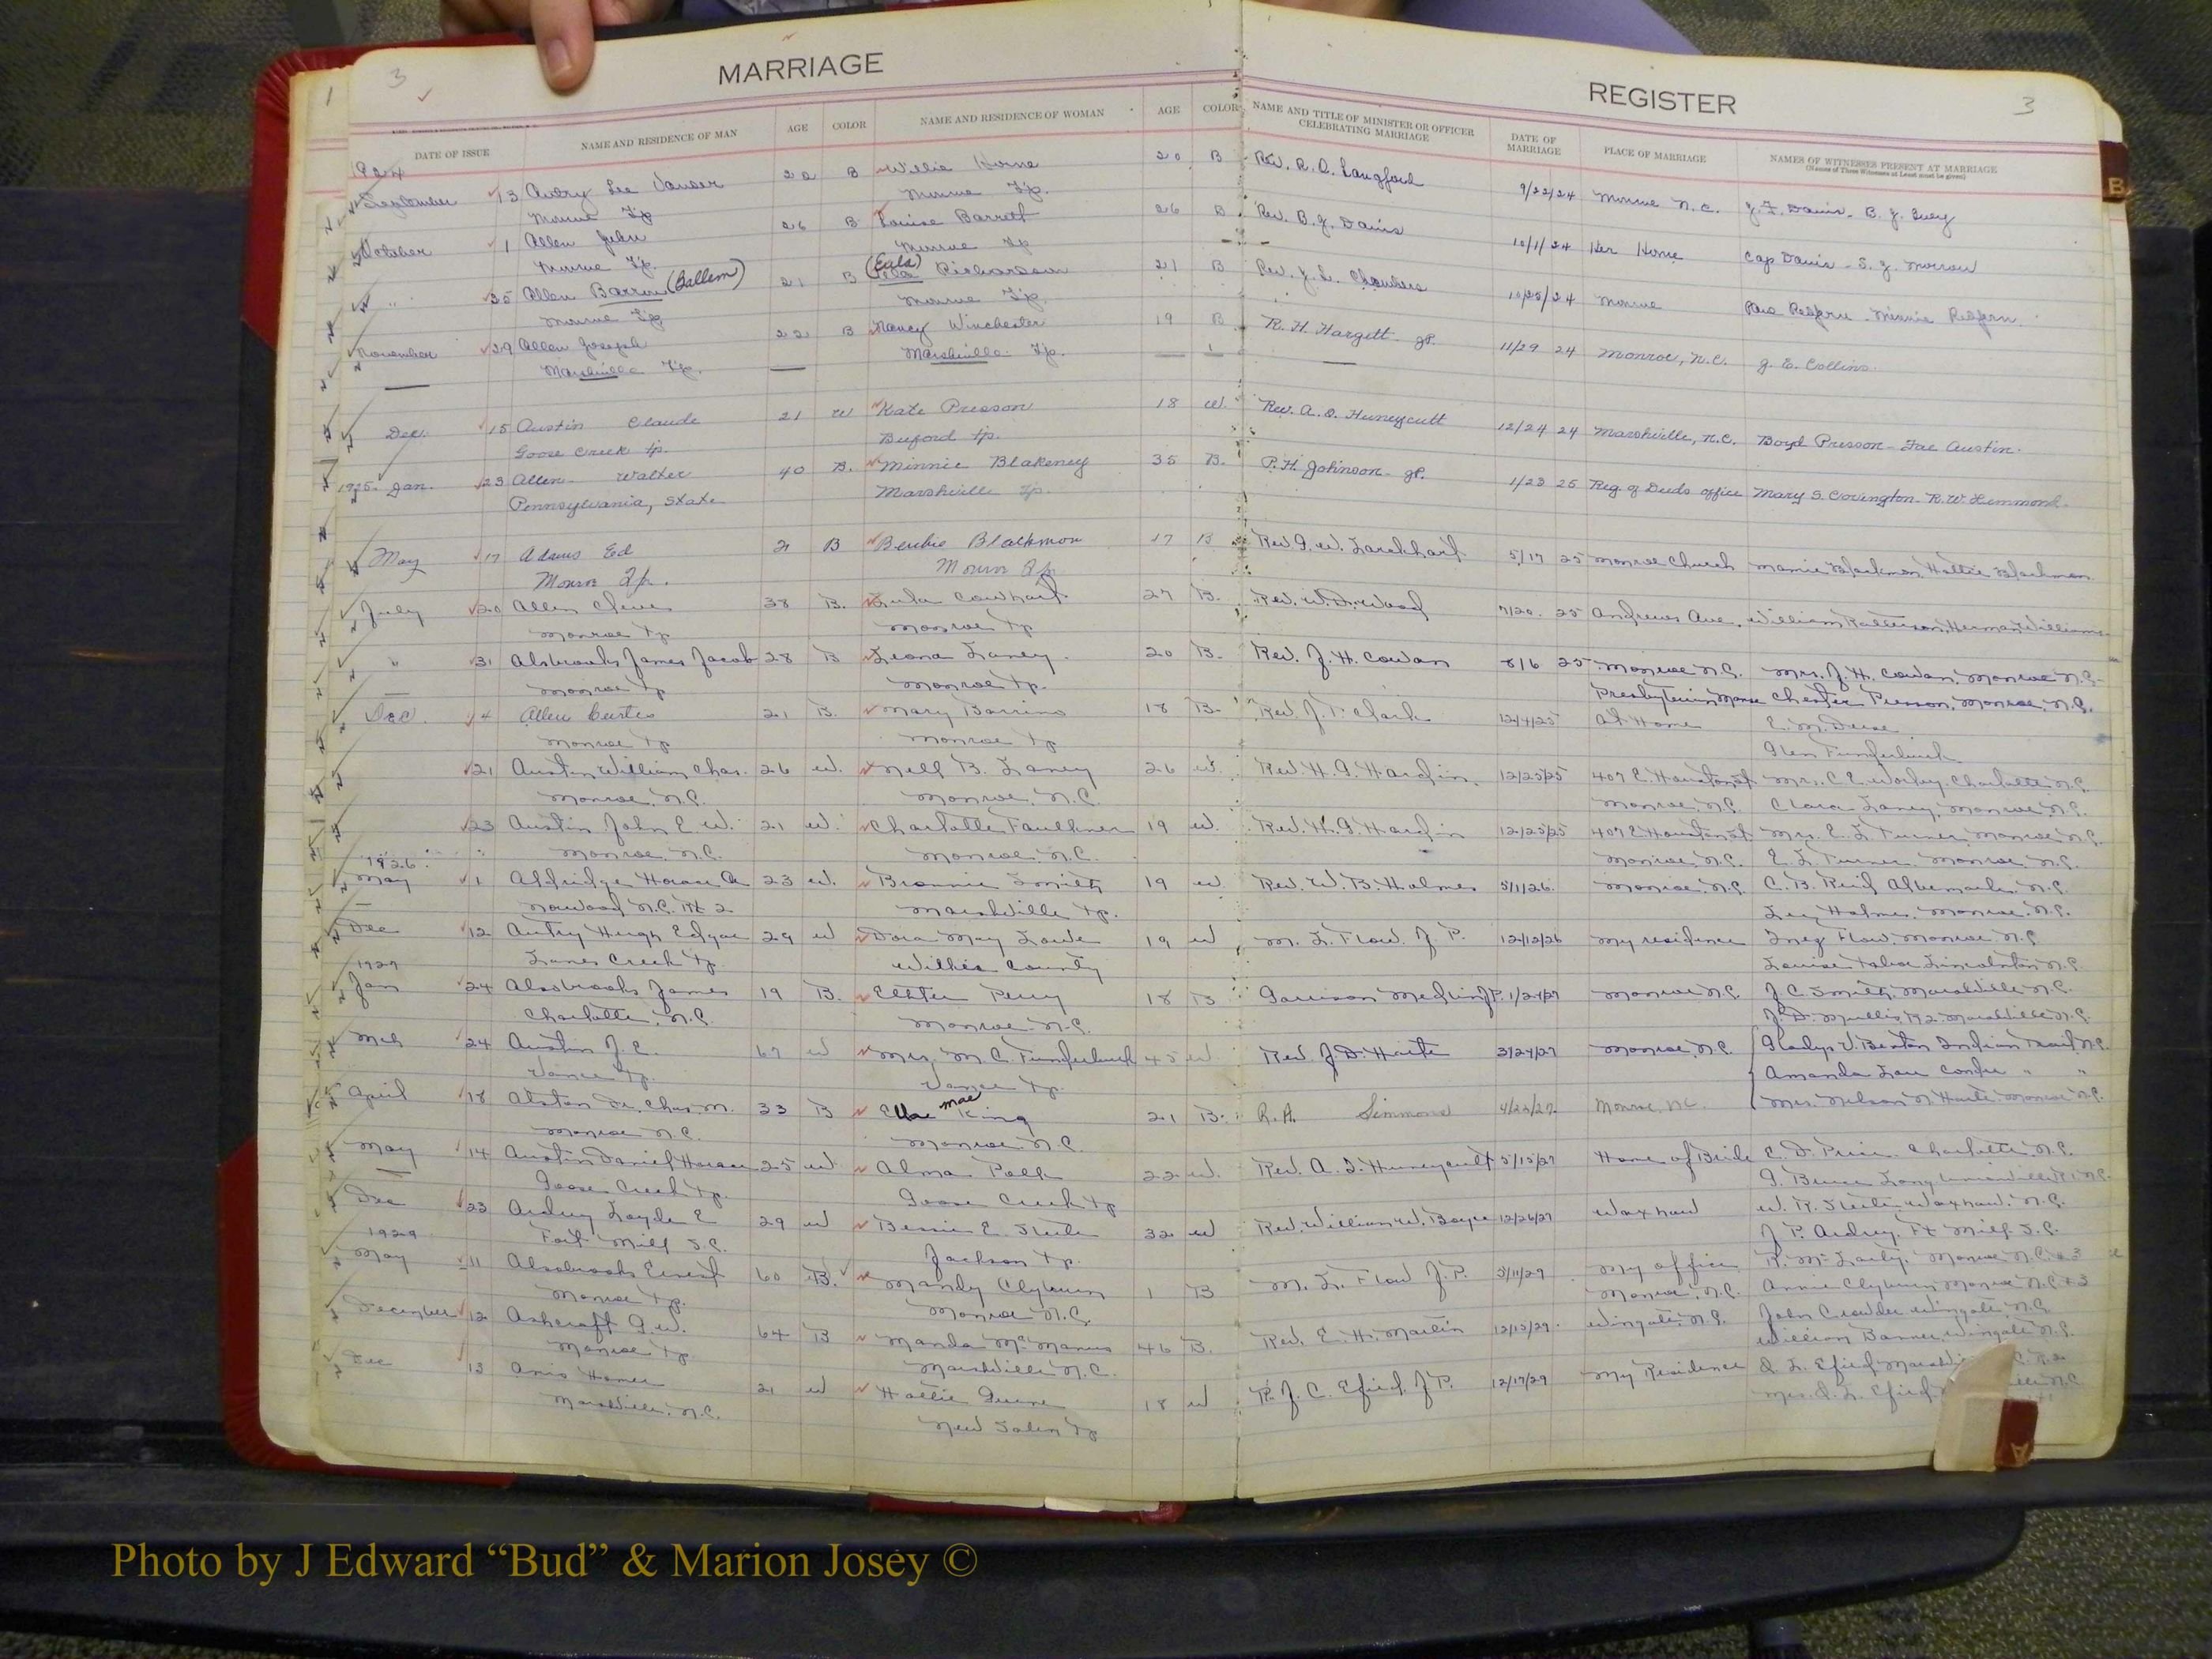 3
MARRIAGE
REGISTER
3
1
DATE OF ISSUE
NAME AND RESIDENCE OF MAN
AGE
COLOR
NAME AND RESIDENCE OF WOMAN
AGE
COLOR
NAME AND TITLE OF MINISTER OR OFFICER CELEBRATING MARRIAGE
DATE OF MARRIAGE
PLACE OF MARRIAGE
NAMES OF WITNESSES PRESENT AT MARRIAGE
(Names of Three Witnesses at Least must be given)
1924
September 13 Lee B Willie Horne 20 B Rev. R. A. Langford 9/22/24 Monroe N.C.
Monroe Tp Monroe Tp.
October 1 Allen John 26 B Louise Barrett 26 B Rev. B. J. Davis 10/1/24 Her Home Cap Davis - S. J. Morrow
Monroe Tp. Monroe Tp
" 25 Allen Barron (Ballem) 21 B (Eula) Eva Richardson 21 B Rev. J. L. Chambers 10/25/24 Monroe Redfern - Minnie Redfern
Monroe Tp Monroe Tp.
November 29 Allen Joseph 22 B Nancy Winchester 19 B R. H. Hargett - JP. 11/29 24 Monroe, N.C. J. E. Collins.
Marshville Tp. Marshville Tp.
Dec. 15 Austin Claude 21 W Kate Presson 18 W. Rev. A. D. Huneycutt 12/24 24 Marshville, N.C. Boyd Presson - Fae Austin.
Goose Creek tp. Buford tp.
1925- Jan. 23 Allen - Walter 40 B. Minnie Blakeney 35 B. P. H. Johnson - JP. 1/23 25 Reg. of Deeds office Mary S. Covington - R. W. Lemmond.
Pennsylvania, State Marshville Tp.
May 17 Adams Ed 21 B Blackmon 17 B Rev 5/17 25 Monroe Church Mamie Blackmon, Hattie Blackmon
Monroe Tp. Monroe Tp
July 20 Allen 38 B. Lula 27 B. Rev. W. D. Wood 7/20. 25 Andrews Ave. William Patterson, Herman Williams
Monroe Tp Monroe Tp
" 31 Alsbrooks James Jacob 28 B Leona Laney. 20 B. Rev. J. H. Cowan 8/6 25 Monroe N.C. Mrs. J. H. Cowan, Monroe N.C.
Monroe Tp Monroe Tp. Presbyterian Manse Chester Presson, Monroe, N.C.
Dec. 4 Allen Curtis 21 B. Mary Barrino 18 B. Rev. J. T. Clark 12/4/25 At Home
Monroe Tp Monroe Tp Funderburk
21 Austin William Chas. 26 W. Nell B. Laney 26 W. Rev. H. G. Hardin. 12/25/25 407 E. Houston St Mrs. C. E. Worley, Charlotte N.C.
Monroe, N.C. Monroe, N.C. Monroe, N.C. Clara Laney, Monroe, N.C.
23 Austin John E. W. 21 W. Charlotte Faulkner 19 W. Rev. H. G. Hardin 12/25/25 407 E Houston St Mrs. E. L. Turner, Monroe N.C.
Monroe, N.C. Monroe, N.C. Monroe, N.C. E. L. Turner, Monroe N.C.
1926
May 1 Aldridge Horace 23 W. Smith 19 W Rev. W. B. Holmes 5/1/26. Monroe, N.C. C. B. Reid Albemarle, N.C.
Norwood N.C. Rt 2 Marshville Tp. Holmes, Monroe, N.C.
Dec 12 Autry Hugh Edgar 29 W Dora May Lowe 19 W M. L. Flow. J. P. 12/12/26 My residence Inez Flow, Monroe N.C
Lanes Creek Tp Wilkes County Louise Lincolnton N.C.
1927
Jan 24 Alsobrooks James 19 B. Perry 18 B Garrison JP. 1/24/27 Monroe N.C. J. C. Smith, Marshville N.C.
Charlotte, N.C. Monroe N.C. J. D. Mullis R2 Marshville N.C.
Mch 24 Austin J. E. 67 W Mrs. M. C. Funderburk 45 W. Rev. J. D. 3/24/27 Monroe, N.C. Gladys V. Benton Indian Trail N.C.
Vance Tp. Vance Tp. Amanda " "
April 18 Alston Dr. Chas. M. 33 B Ella Mae King 21 B. R. A. Simmons 4/23/27. Monroe, N.C. Mrs. Nelson Monroe N.C.
Monroe N.C. Monroe N.C.
May 14 Austin Daniel Horace 25 W Alma Polk 22 W. Rev. A. D. Huneycutt 5/15/27 Home of Bride E. D. Price Charlotte N.C.
Goose Creek Tp. Goose Creek Tp G. Bruce Long Unionville R1 N.C.
Dec 23 Ardrey E 29 W Bessie E. Steele 32 W Rev. William W. Boyce 12/26/27 Waxhaw W. R. Steele, Waxhaw, N.C.
Fort Mill S.C. Jackson Tp. J. P. Ardrey, Ft Mill S.C.
1929
May 11 Alsobrooks Ernest 60 B. Mandy Clyburn 1 B M. L. Flow J. P. 5/11/29 My office Monroe N.C. # 3
Monroe Tp. Monroe N.C. Monroe, N.C. Annie Clyburn, Monroe N.C # 3
December 12 Ashcraft G. W. 64 B Manda McManus 46 B. Rev. E. H. Martin 12/12/29. Wingate, N.C. John Crowder Wingate, N.C.
Monroe Tp Marshville N.C. William Wingate N.C.
Dec 13 Homer 21 W Hallie 18 W R. J. C. Efird, J. P. 12/17/29 My Residence L. Efird
Marshville, N.C. New Salem Tp Mrs. L. Efird
B
A
Photo by J Edward “Bud” & Marion Josey ©